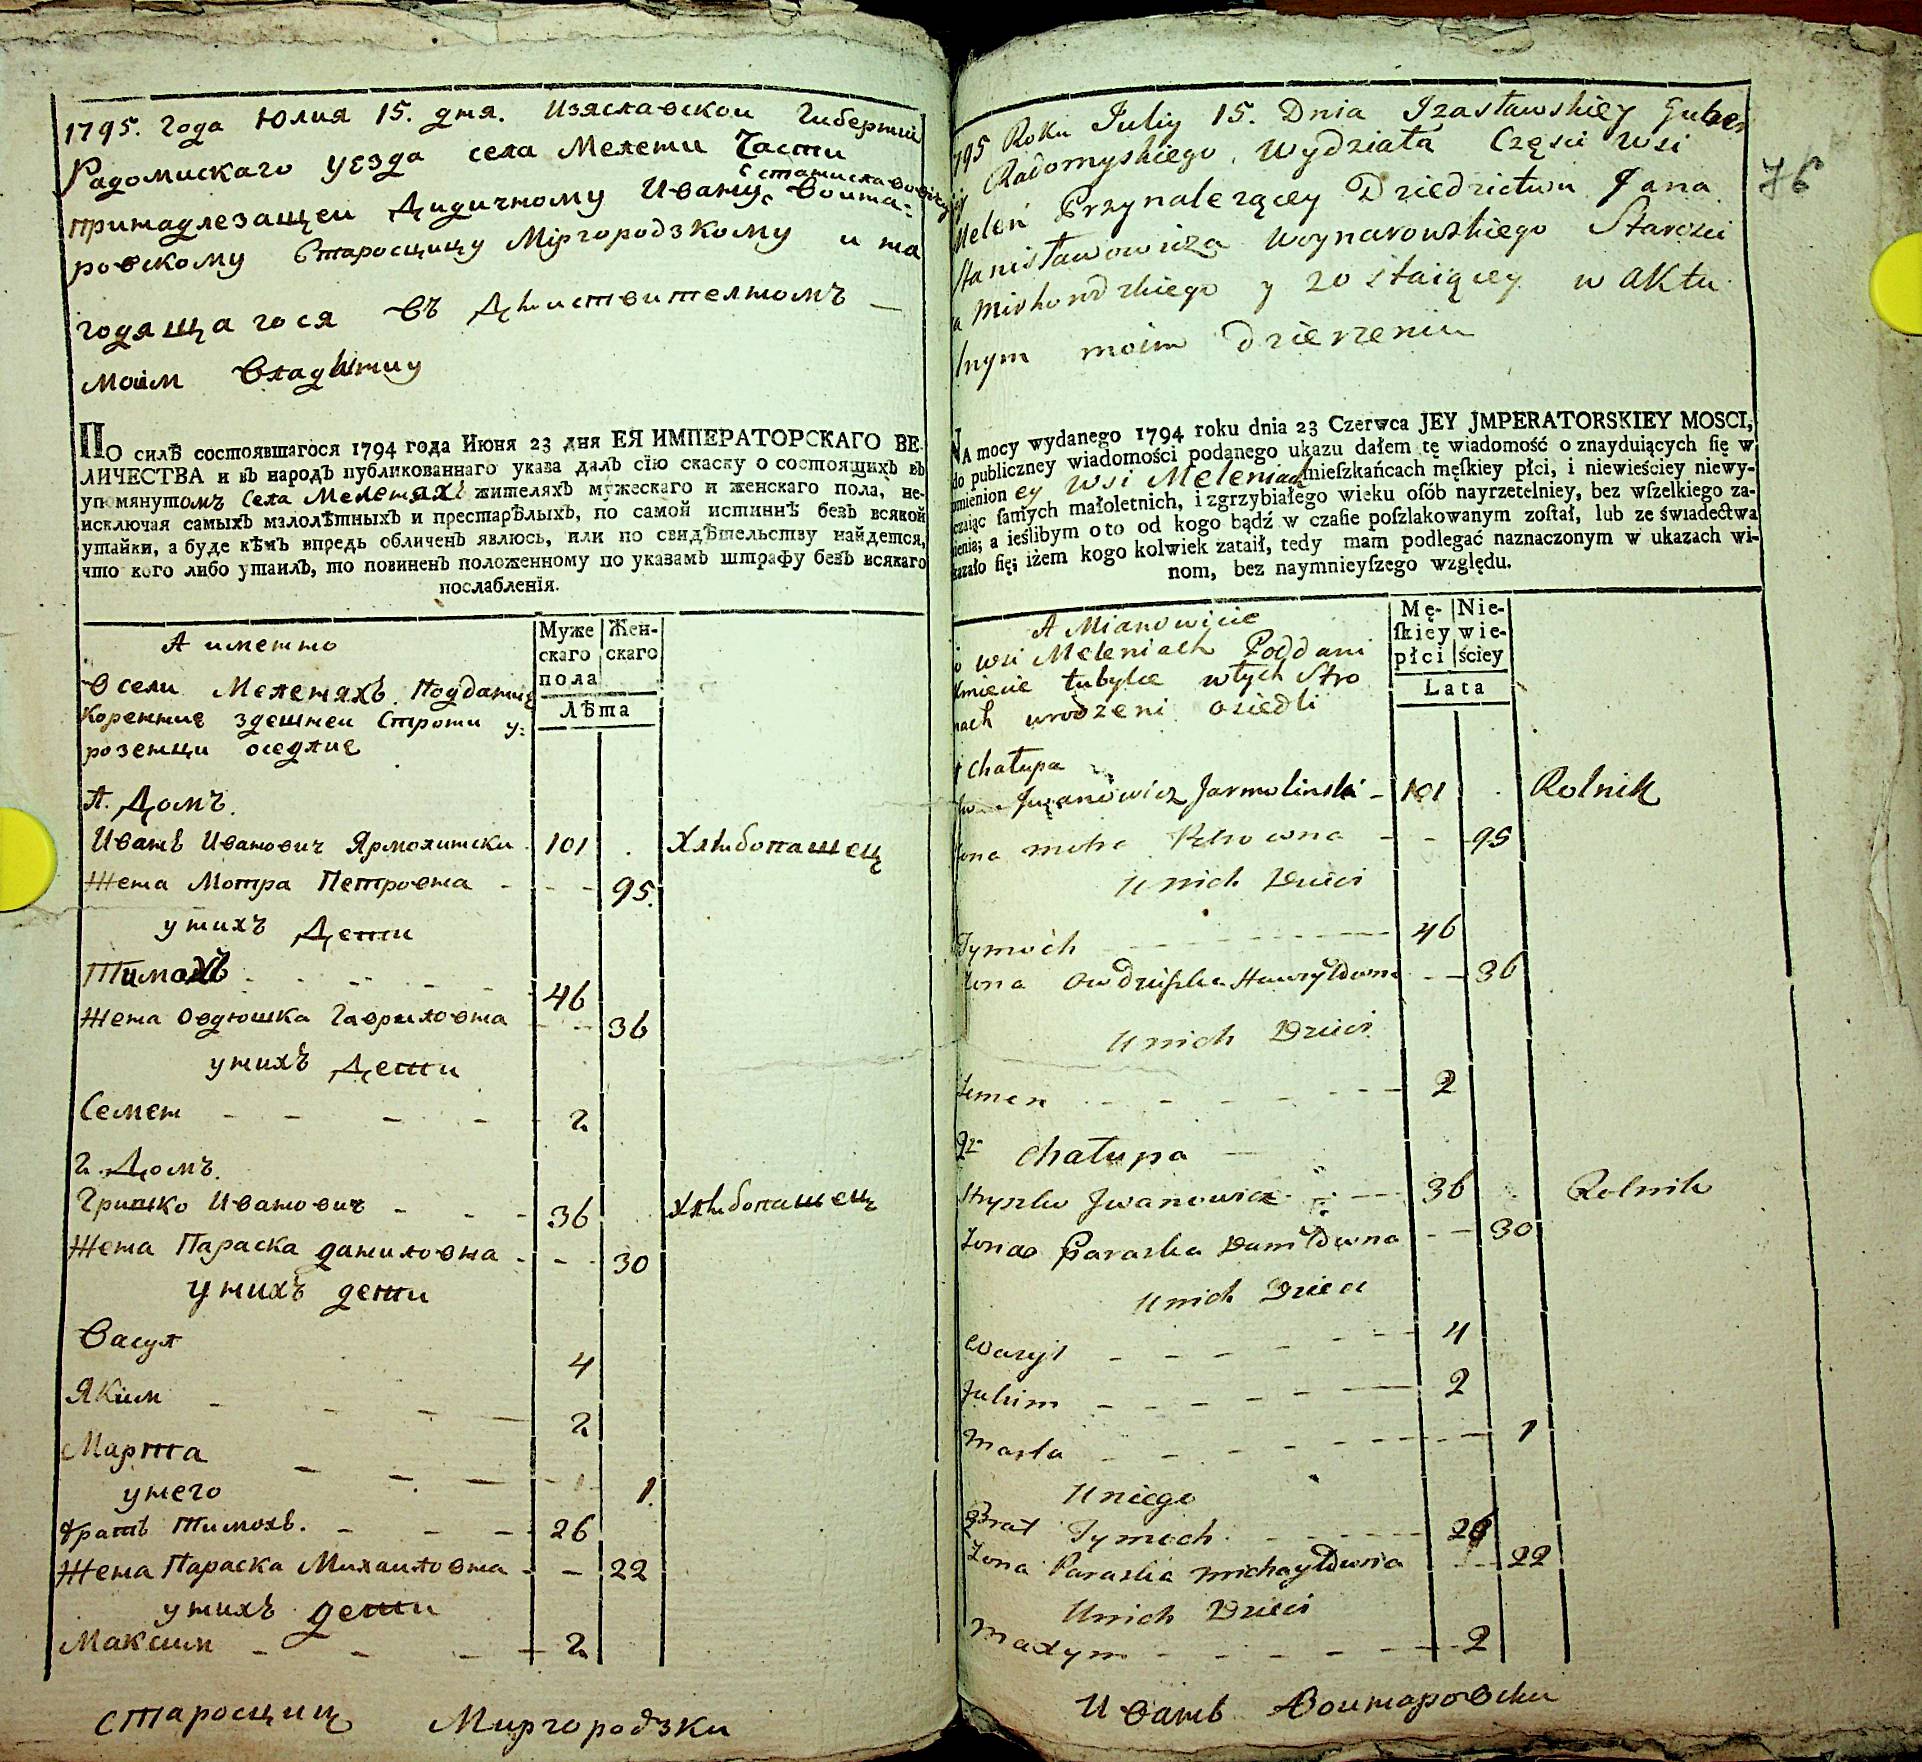 1795. Года Юлия 15. дня. Изяславской Губернии
Радомискаго уезда села Мелени Части
Станиславовичу
принадлежащеи Дидичному Ивану Воина:
ровскому Старосцицу Міргородзкому и на
годящагося въ Дѣиствителномъ —
моім Владѣнию
ПО силѣ состоявшагося 1794 года Июня 23 дня ЕЯ ИМПЕРАТОРСКАГО ВЕ-
ЛИЧЕСТВА и въ народъ публикованнаго указа далъ сїю скаску о состоящихъ въ
упомянутомъ Села Меленяхъ жителяхъ мужескаго и женскаго пола, не-
исключая самыхъ малолѣтныхъ и престарѣлыхъ, по самой истиннѣ безъ всякой
утайки, а буде кѣмъ впредь обличенъ явлюсь, или по свидѣтельству найдется,
что кого либо утаилъ, то повиненъ положенному по указамъ штрафу безъ всякаго
послабленїя.
А иметто
Муже
скаго
пола
Жен-
скаго
Лѣта
В сели Меленяхъ Поддание
Коренние здешнеи Строни у:
роженци оседлие
А. Домъ.
Иванъ Иванович Ярмолински 101 . Хлѣбопашец
Жена Мотра Петровна - - - 95.
у нихъ Дети
Тимохъ - - - - - 46
Жена Овдюшка Гавриловна - - - 36
у нихъ Дети
Семен - - - - - 2
2. Домъ.
Гришко Иванович - - - 36 Хлѣбопашец
Жена Параска даниловна - - - 30
У нихъ дети
Васул 4
Яким - - - 2
Марта - - - - 1.
у него
братъ Тимохъ. - - - - 26
Жена Параска Михаиловна - - 22
у нихъ дети
Максим - - - - 2
старосциц Миргородзки
76
795 Roku Juliy 15. Dnia Izasławskiey Guber
Radomyskiego Wydziała Częsci wsi
Meleń Przynalezącey Dziedzictwu Jana
Stanisławowicza Woynarowskiego Starosci
a Mirhorodzkiego y zostaiącey w aktu
lnym moim Dzierzeniu
NA mocy wydanego 1794 roku dnia 23 Czerwca JEY JMPERATORSKIEY MOSCI,
do publiczney wiadomości podanego ukazu dałem tę wiadomość o znayduiących ſię w
pmienioney wsi Meleniach mieſzkańcach męſkiey płci, i niewieściey niewy-
czaiąc ſamych małoletnich, i zgrzybiałego wieku oſób nayrzetelniey, bez wſzelkiego za-
ienia; a ieślibym o to od kogo bądź w czaſie poſzlakowanym zoſtał, lub ze świadectwa
kazało ſię; iżem kogo kolwiek zataił, tedy mam podlegać naznaczonym w ukazach wi-
nom, bez naymnieyſzego względu.
A Mianowicie
Mę-
ſkiey
płci
Nie-
wie-
ściey
Lata
wsi Meleniach Poddani
Kmiecie tubylce w tych Stro
nach urodzeni osiedli
1 chałupa
Iwanowicz Jarmolinski - 101 . Rolnik
żona motra Petrowna - - - 95
U nich Dzieci
Tymoch - - - - - 46
żona Owdiuszka Hawryłowna - - 36
U nich Dzieci
Semen - - - - - 2
2 chałupa
Hryszko Jwanowicz - - - 36 Rolnik
żona Paraska Daniłowna - - 30
U nich Dzieci
Wasyl - - - - 4
Jakim - - - - 2
Marta - - - - - 1
U niego
Brat Tymoch - - - - 26
żona Paraska Michayłowna - - 22
U nich Dzieci
Maxym - - - - 2
Иванъ Воинаровски